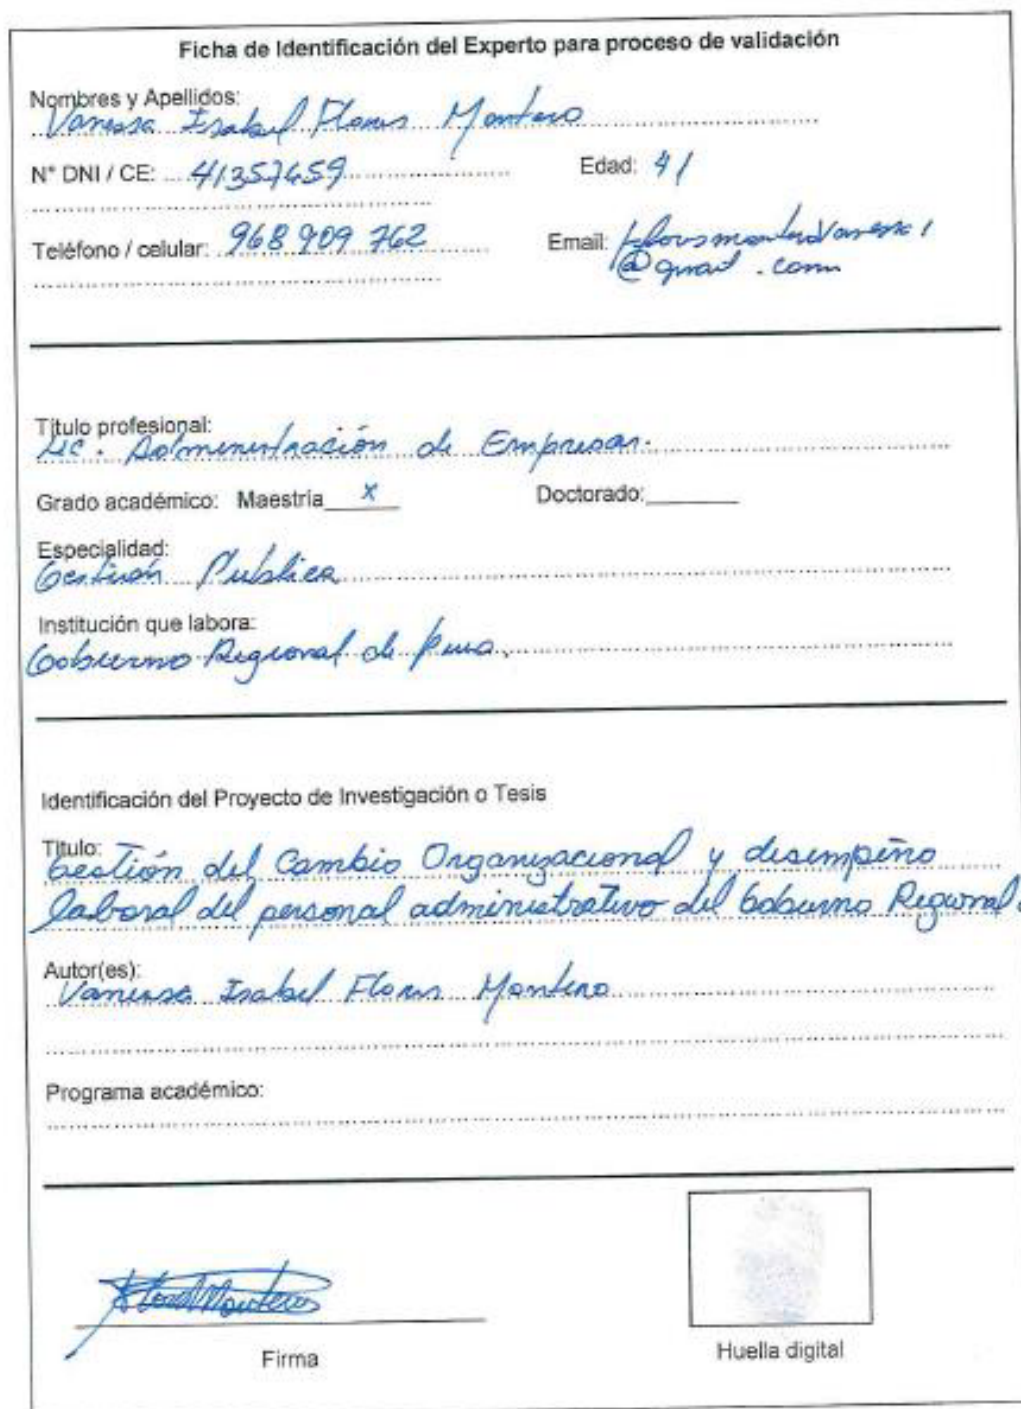 Ficha de Identificación del Experto para proceso de validación
Nombres y Apellidos:
Vanessa Isabel Flores Montero
N° DNI / CE: 41357659 Edad: 41
Teléfono / celular: 968 909 762 Email:
@gmail.com
Título profesional:
Lic. Administración de Empresas.
Grado académico: Maestría x Doctorado:
Especialidad:
Gestión Publica
Institución que labora:
Gobierno Regional de Piura.
Identificación del Proyecto de Investigación o Tesis
Título:
Gestión del Cambio Organizacional y desempeño
laboral del personal administrativo del Gobierno Regional.
Autor(es):
Vanessa Isabel Flores Montero
Programa académico:
Firma
Huella digital